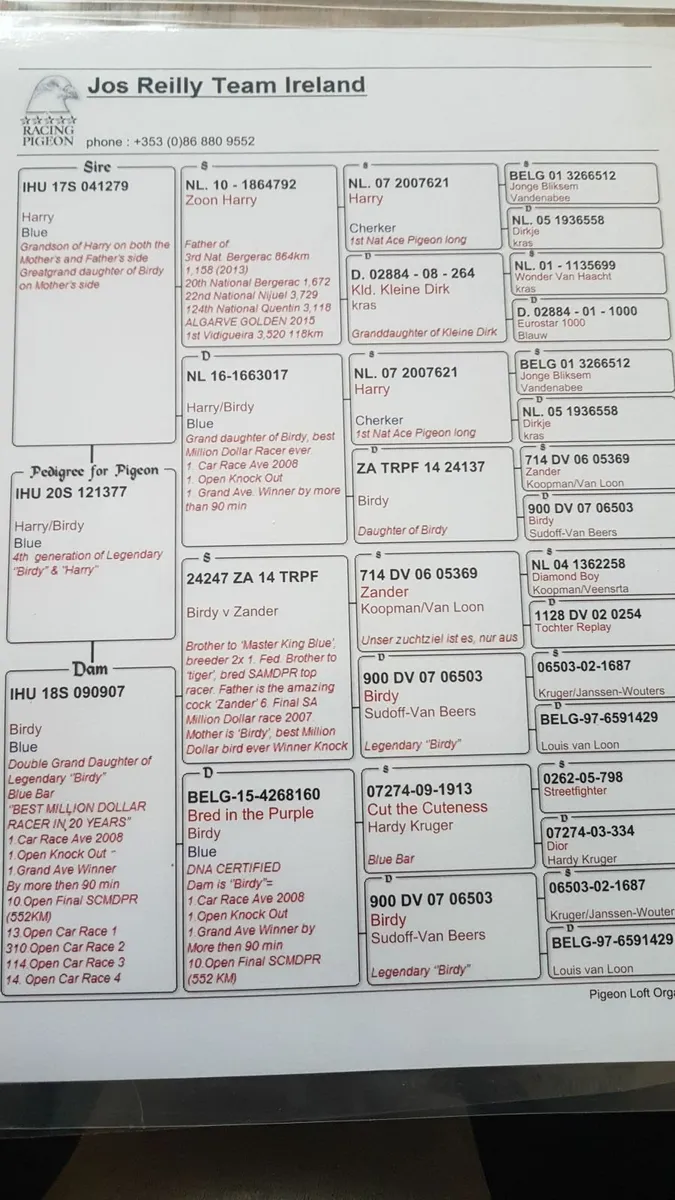 Jos Reilly Team Ireland
RACING
PIGEON
phone : +353 (0)86 880 9552
Sire
IHU 17S 041279
Harry
Blue
Grandson of Harry on both the
Mother's and Father's side
Greatgrand daughter of Birdy
on Mother's side
Pedigree for Pigeon
IHU 20S 121377
Harry/Birdy
Blue
4th generation of Legendary
"Birdy" & "Harry"
Dam
IHU 18S 090907
Birdy
Blue
Double Grand Daughter of
Legendary "Birdy"
Blue Bar
"BEST MILLION DOLLAR
RACER IN 20 YEARS"
1.Car Race Ave 2008
1.Open Knock Out -
1.Grand Ave Winner
By more then 90 min
10.Open Final SCMDPR
(552KM)
13.Open Car Race 1
310.Open Car Race 2
114.Open Car Race 3
14. Open Car Race 4
S
NL. 10 - 1864792
Zoon Harry
Father of
3rd Nat. Bergerac 864km
1,158 (2013)
20th National Bergerac 1,672
22nd National Nijuel 3,729
124th National Quentin 3,118
ALGARVE GOLDEN 2015
1st Vidigueira 3,520 118km
D
NL 16-1663017
Harry/Birdy
Blue
Grand daughter of Birdy, best
Million Dollar Racer ever
1. Car Race Ave 2008
1. Open Knock Out
1. Grand Ave. Winner by more
than 90 min
S
24247 ZA 14 TRPF
Birdy v Zander
Brother to 'Master King Blue',
breeder 2x 1. Fed. Brother to
'tiger', bred SAMDPR top
racer. Father is the amazing
cock 'Zander' 6. Final SA
Million Dollar race 2007.
Mother is 'Birdy', best Million
Dollar bird ever Winner Knock
D
BELG-15-4268160
Bred in the Purple
Birdy
Blue
DNA CERTIFIED
Dam is "Birdy"=
1.Car Race Ave 2008
1.Open Knock Out
1.Grand Ave Winner by
More then 90 min
10.Open Final SCMDPR
(552 KM)
S
NL. 07 2007621
Harry
Cherker
1st Nat Ace Pigeon long
D
D. 02884 - 08 - 264
Kld. Kleine Dirk
kras
Granddaughter of Kleine Dirk
S
NL. 07 2007621
Harry
Cherker
1st Nat Ace Pigeon long
D
ZA TRPF 14 24137
Birdy
Daughter of Birdy
S
714 DV 06 05369
Zander
Koopman/Van Loon
Unser zuchtziel ist es, nur aus
D
900 DV 07 06503
Birdy
Sudoff-Van Beers
Legendary "Birdy"
S
07274-09-1913
Cut the Cuteness
Hardy Kruger
Blue Bar
D
900 DV 07 06503
Birdy
Sudoff-Van Beers
Legendary "Birdy"
S
BELG 01 3266512
Jonge Bliksem
Vandenabee
D
NL. 05 1936558
Dirkje
kras
S
NL. 01 - 1135699
Wonder Van Haacht
kras
D
D. 02884 - 01 - 1000
Eurostar 1000
Blauw
S
BELG 01 3266512
Jonge Bliksem
Vandenabee
D
NL. 05 1936558
Dirkje
kras
S
714 DV 06 05369
Zander
Koopman/Van Loon
D
900 DV 07 06503
Birdy
Sudoff-Van Beers
S
NL 04 1362258
Diamond Boy
Koopman/Veensrta
D
1128 DV 02 0254
Tochter Replay
S
06503-02-1687
Kruger/Janssen-Wouters
D
BELG-97-6591429
Louis van Loon
S
0262-05-798
Streetfighter
D
07274-03-334
Dior
Hardy Kruger
S
06503-02-1687
Kruger/Janssen-Wouter
D
BELG-97-6591429
Louis van Loon
Pigeon Loft Orga